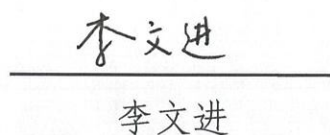 李文进
李文进